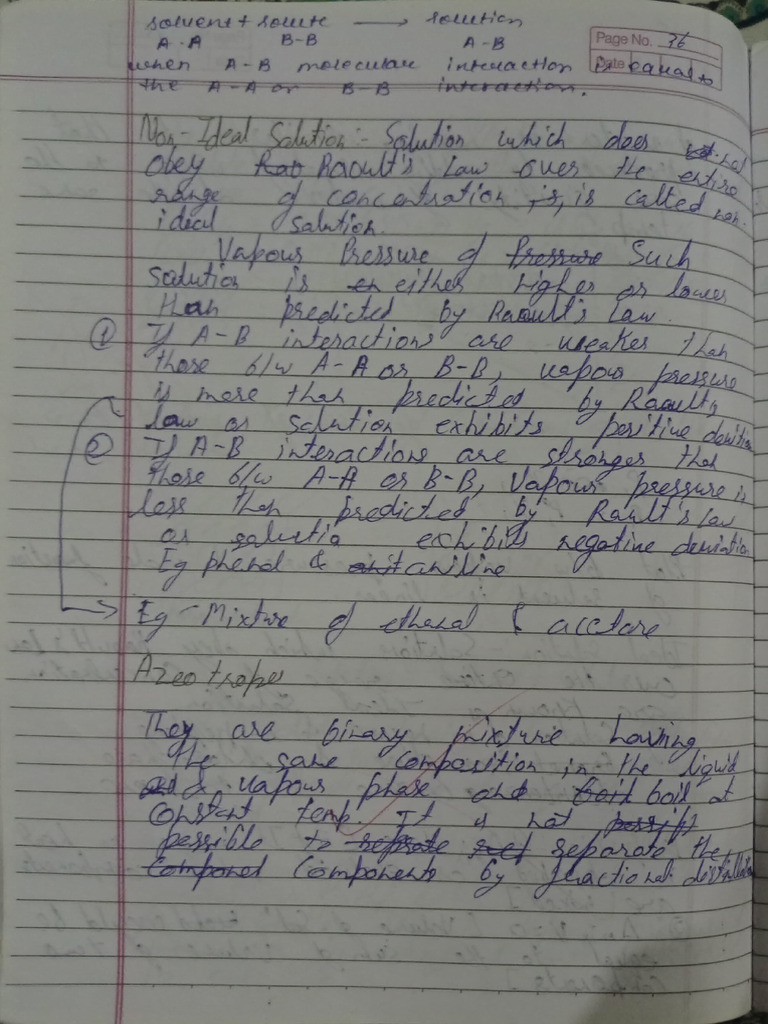 solvent + solute → solution
A-A B-B A-B
Page No. 36
Date
when A-B molecular interaction is equal to
the A-A or B-B interaction.
Non-Ideal Solution:- Solution which does not
obey Raoult's Law over the entire
range of concentration, is called non
ideal solution.
Vapour Pressure of Such
solution is either higher or lower
than predicted by Raoult's Law.
① If A-B interactions are weaker than
those b/w A-A or B-B, vapour pressure
is more than predicted by Raoult's
law or solution exhibits positive deviation
② If A-B interactions are stronger than
those b/w A-A or B-B, Vapour pressure is
less than predicted by Rault's Law
or solutio exhibits negative deviation
Eg phenol & aniline
Eg - Mixture of ethanol & acetone
Azeotropes
They are binary mixture having
the same composition in the liquid
& vapour phase and boil at
constant temp. It is not
possible to separate the
components by fractional distillation